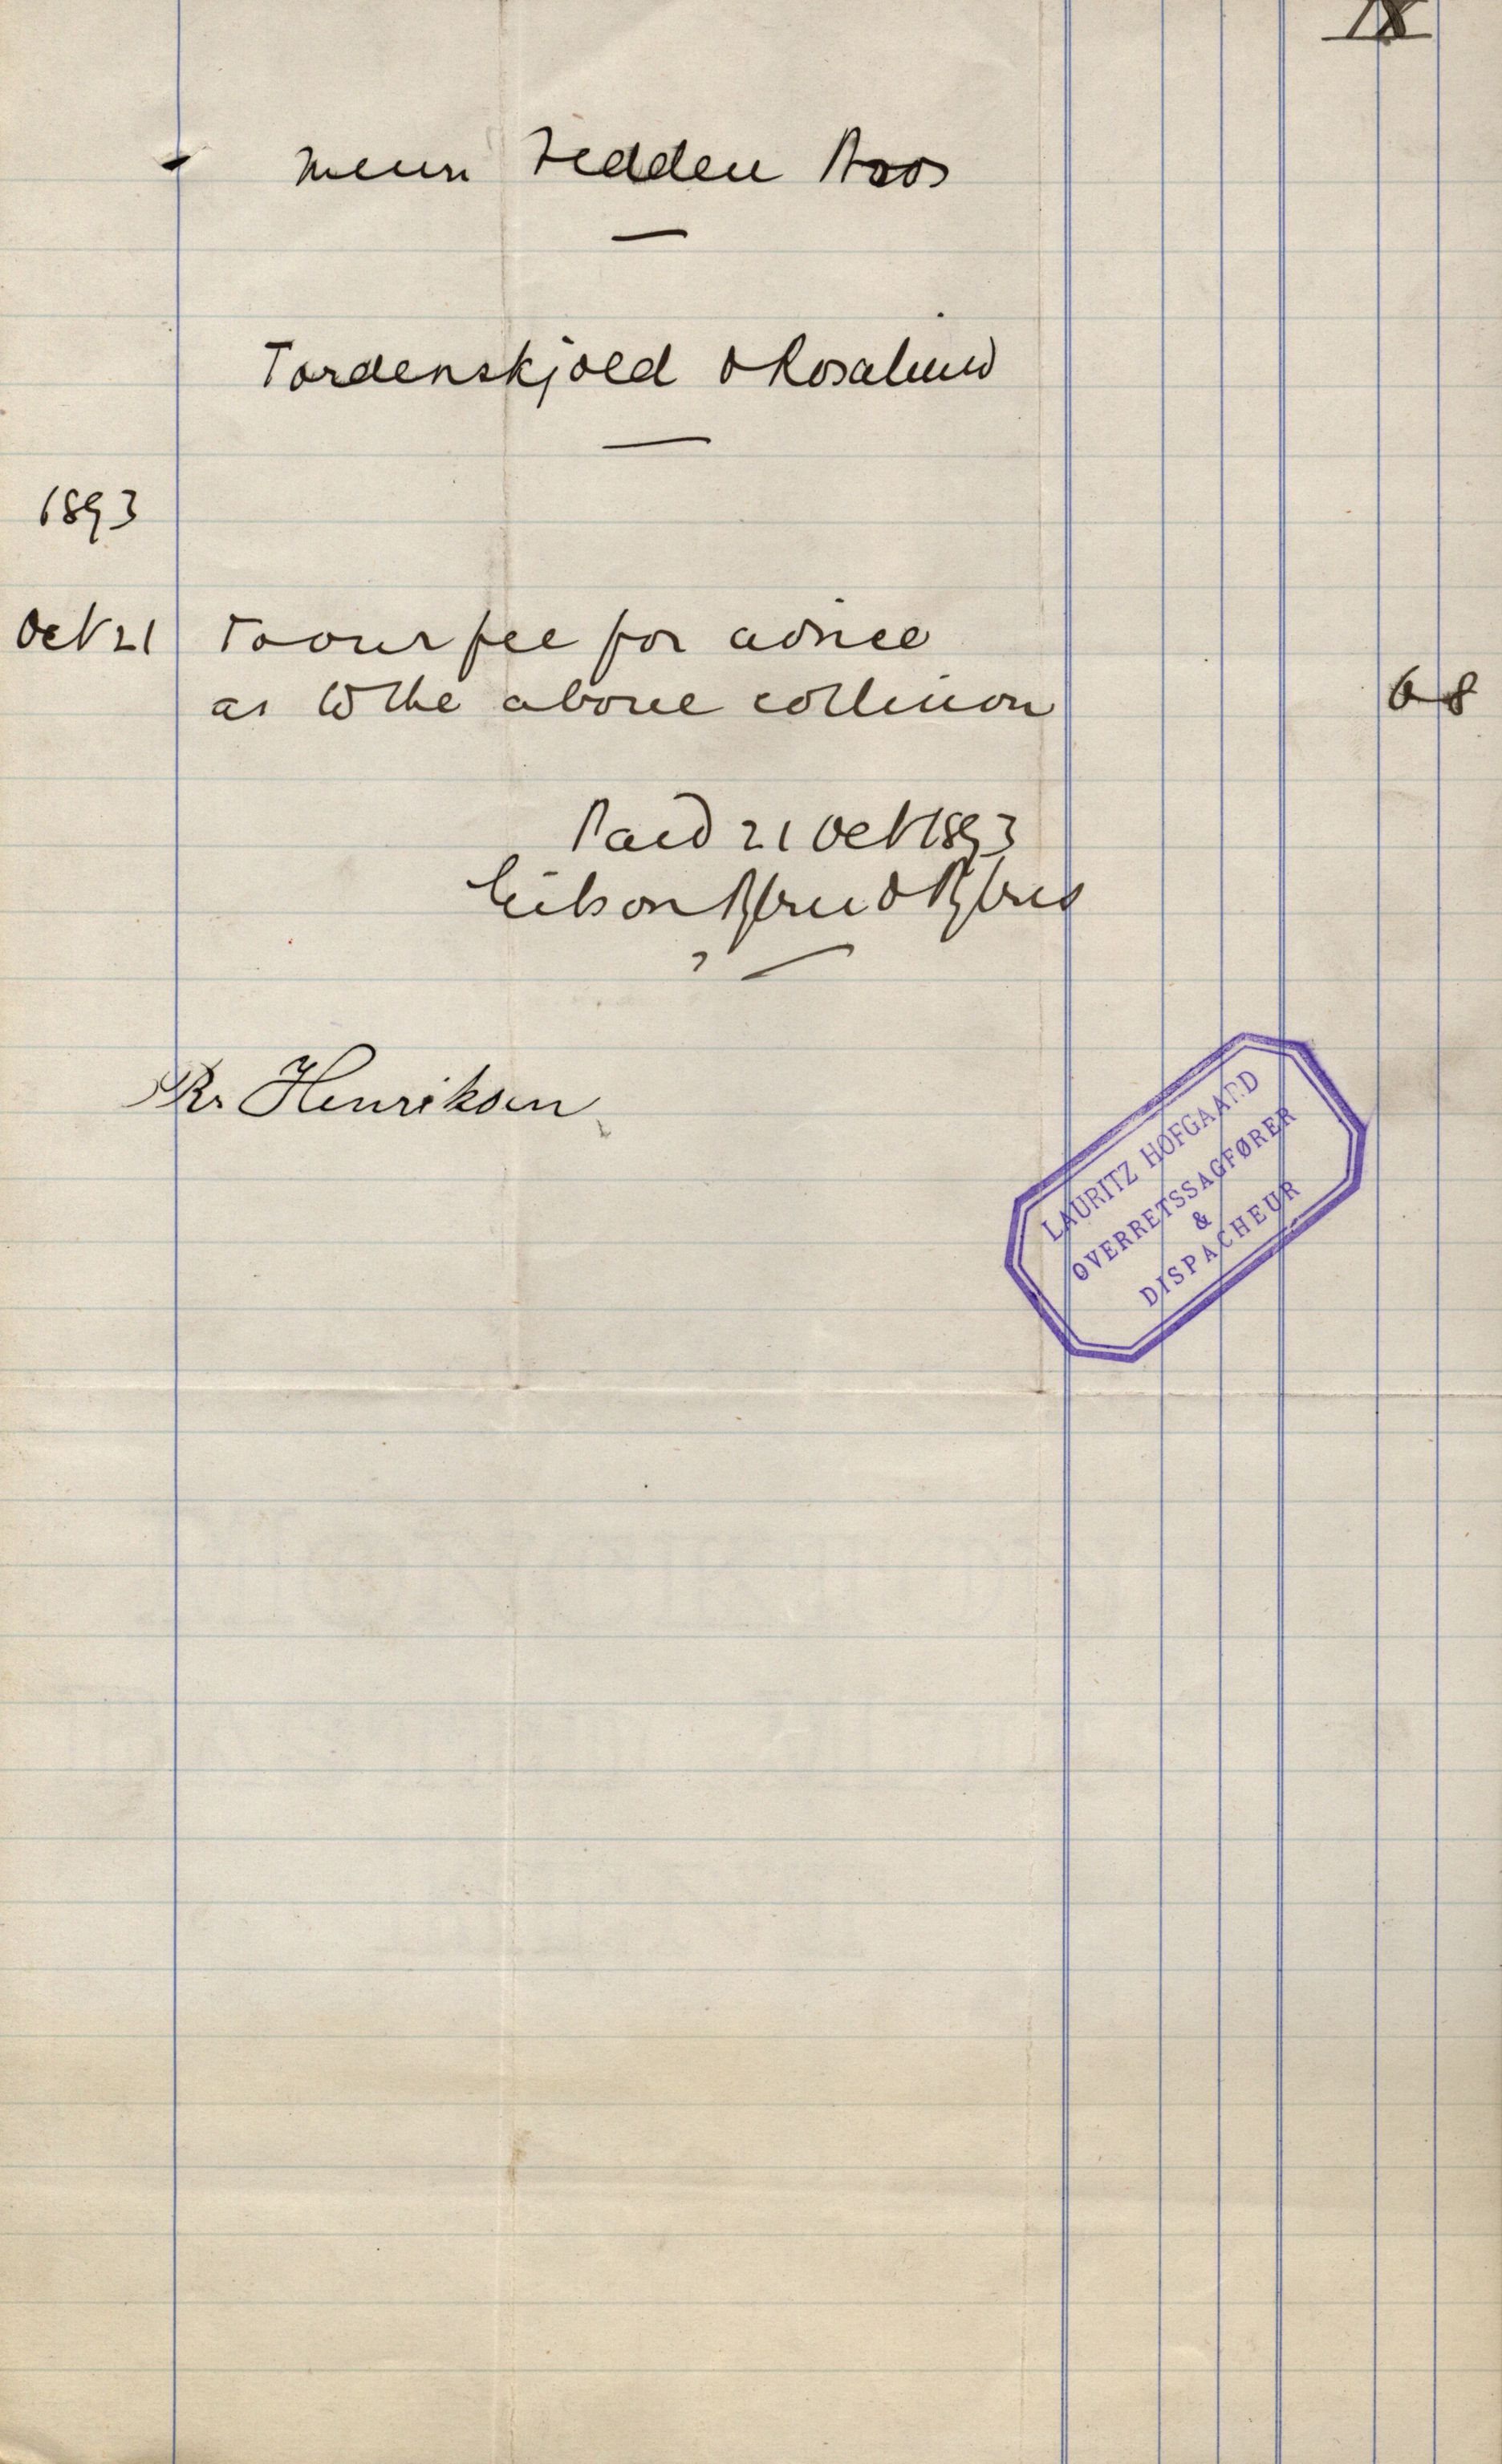 18
Messrs Hedden Bros
Tordenskjold & Rosalind
1893
Oct 21 To our fee for advice
as to the above collision 6 8
Paid 21 Oct 1893
Gibson Pybus & Pybus
Br. Henriksen
LAURITZ HOFGAARD
OVERRETSSAGFØRER
&
DISPACHEUR